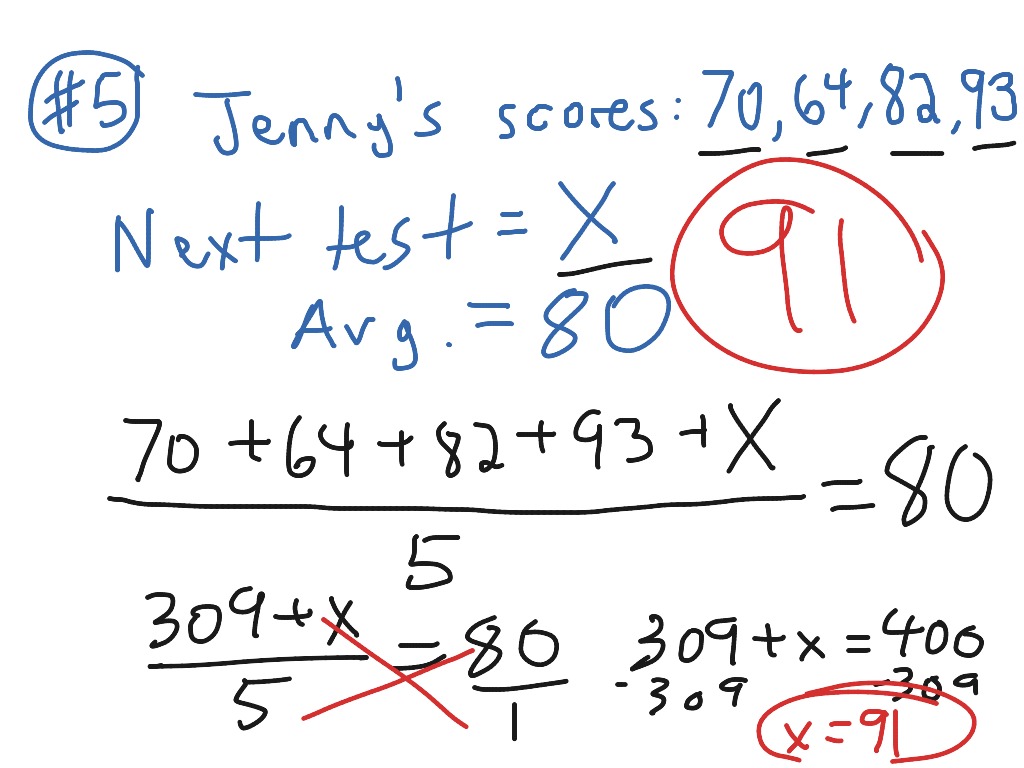 #5 Jenny's scores: 70, 64, 82, 93
Next test = X
91
Avg. = 80
70 + 64 + 82 + 93 + X
= 80
5
309 + x
= 80
5
1
309 + x = 400
-309 -309
x = 91